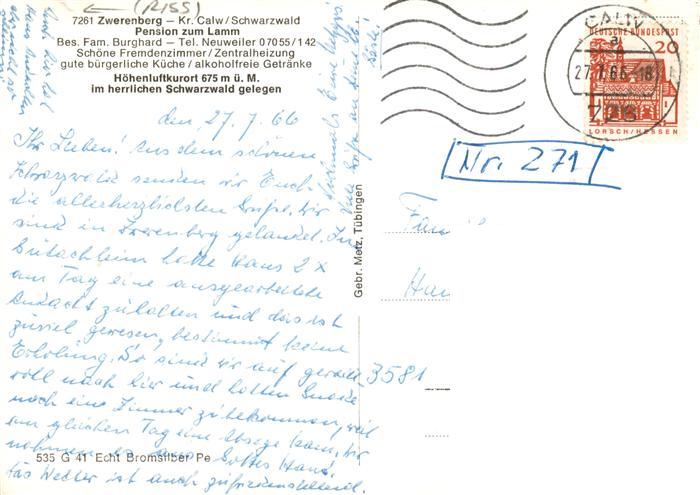 (RISS)
7261 Zwerenberg — Kr. Calw/Schwarzwald
Pension zum Lamm
Bes. Fam. Burghard — Tel. Neuweiler 07055/142
Schöne Fremdenzimmer / Zentralheizung
gute bürgerliche Küche / alkoholfreie Getränke
Höhenluftkurort 675 m ü. M.
im herrlichen Schwarzwald gelegen
den, 27.7.66
Ihr Lieben! Aus dem schönen
Schwarzwald senden wir Euch
die allerherzlichsten Grüße. Wir
sind in Zwerenberg gelandet. Im
hatte Hans 2 x
am Tag eine ausgearbeitete
Andacht zu halten und das ist
zuviel gewesen, bestimmt keine
Erholung. So sind wir auf
nach hier und hatten Gnade
noch ein Zimmer zu bekommen, weil
am gleichen Tag eine Absage kam. Wir
nehmen es aus Gottes Hand.
Das Wetter ist auch zufriedenstellend.
535 G 41 Echt Bromsilber
Gebr. Metz, Tübingen
CALW
27.7.66-18
726
DEUTSCHE BUNDESPOST
20
LORSCH/HESSEN
Nr. 271
Fam
Han
3581